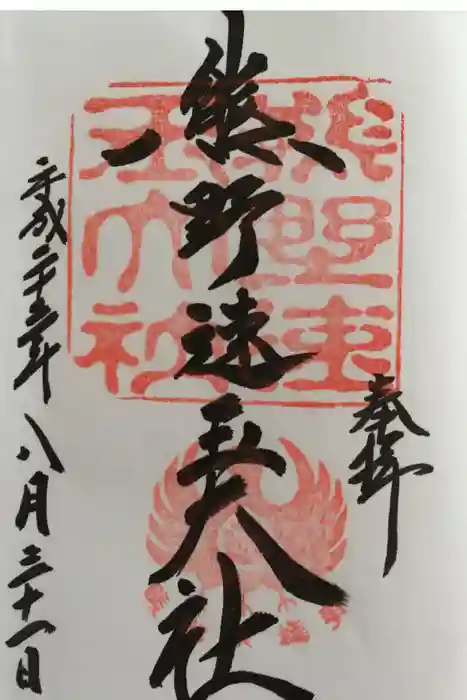 奉拝
熊野速玉大社
平成二十五年八月三十一日
熊野速
玉大社